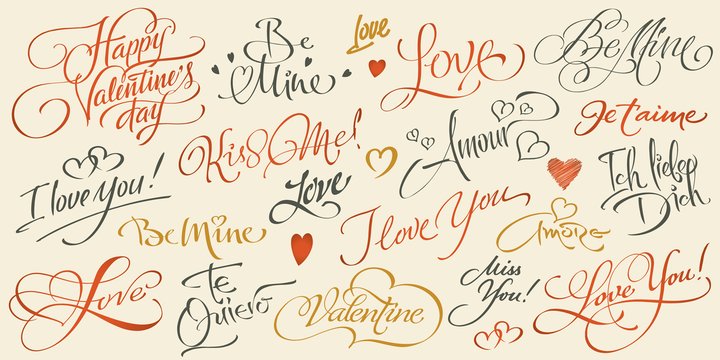 Happy
Valentine's
day
Be
Mine
Love
Love
Be Mine
Je t'aime
Kiss Me!
Amour
I love You!
Love
Ich liebe
Dich
I love You
Be Mine
Amore
Love
Te
Quiero
Valentine
Miss
You!
Love You!